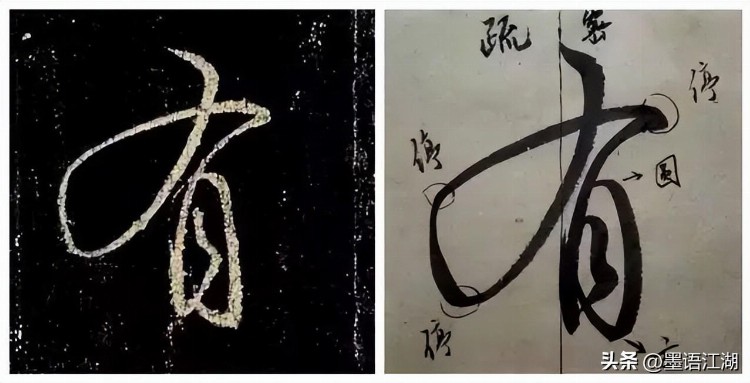 有
疏 密
停
停
有
圆
停
头条 @墨语江湖